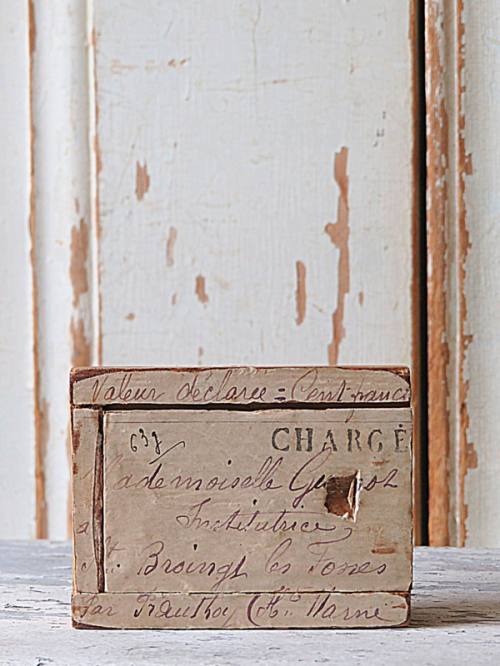 Valeur déclarée = Cent francs
63g
CHARGÉ
Mademoiselle
Institutrice
à St. Broingt les Fosses
Par Prauthoy (Hte Marne